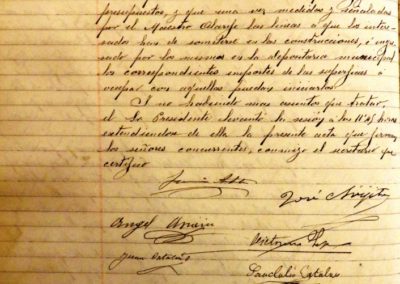 presupuestos, y que una vez medidas y señaladas
por el Maestro Alarife las lineas a que los intere-
sados han de someterse en las construcciones, é ingre-
sado por los mismos en la depositaria municipal
los correspondientes importes de las superficies á
ocupar con aquellas puedan iniciarlas.
Y no habiendo mas asuntos que tratar,
el Sr Presidente levantó la sesión a las 11'45 horas
extendiendose de ella la presente acta que firman
los señores concurrentes, conmigo el secretario que
certifico
José
Angel
Juan